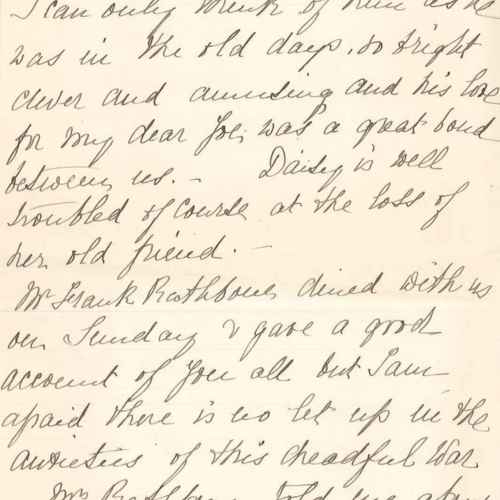 I can only think of him as he
was in the old days, so bright
clever and amusing and his love
for my dear Joe, was a great bond
between us. — Daisy is well
troubled of course at the loss of
her old friend. —
Mr Frank Rathbone dined with us
on Sunday & gave a good
account of you all but I am
afraid there is no let up in the
anxieties of this dreadful War
Mr Rathbone told me